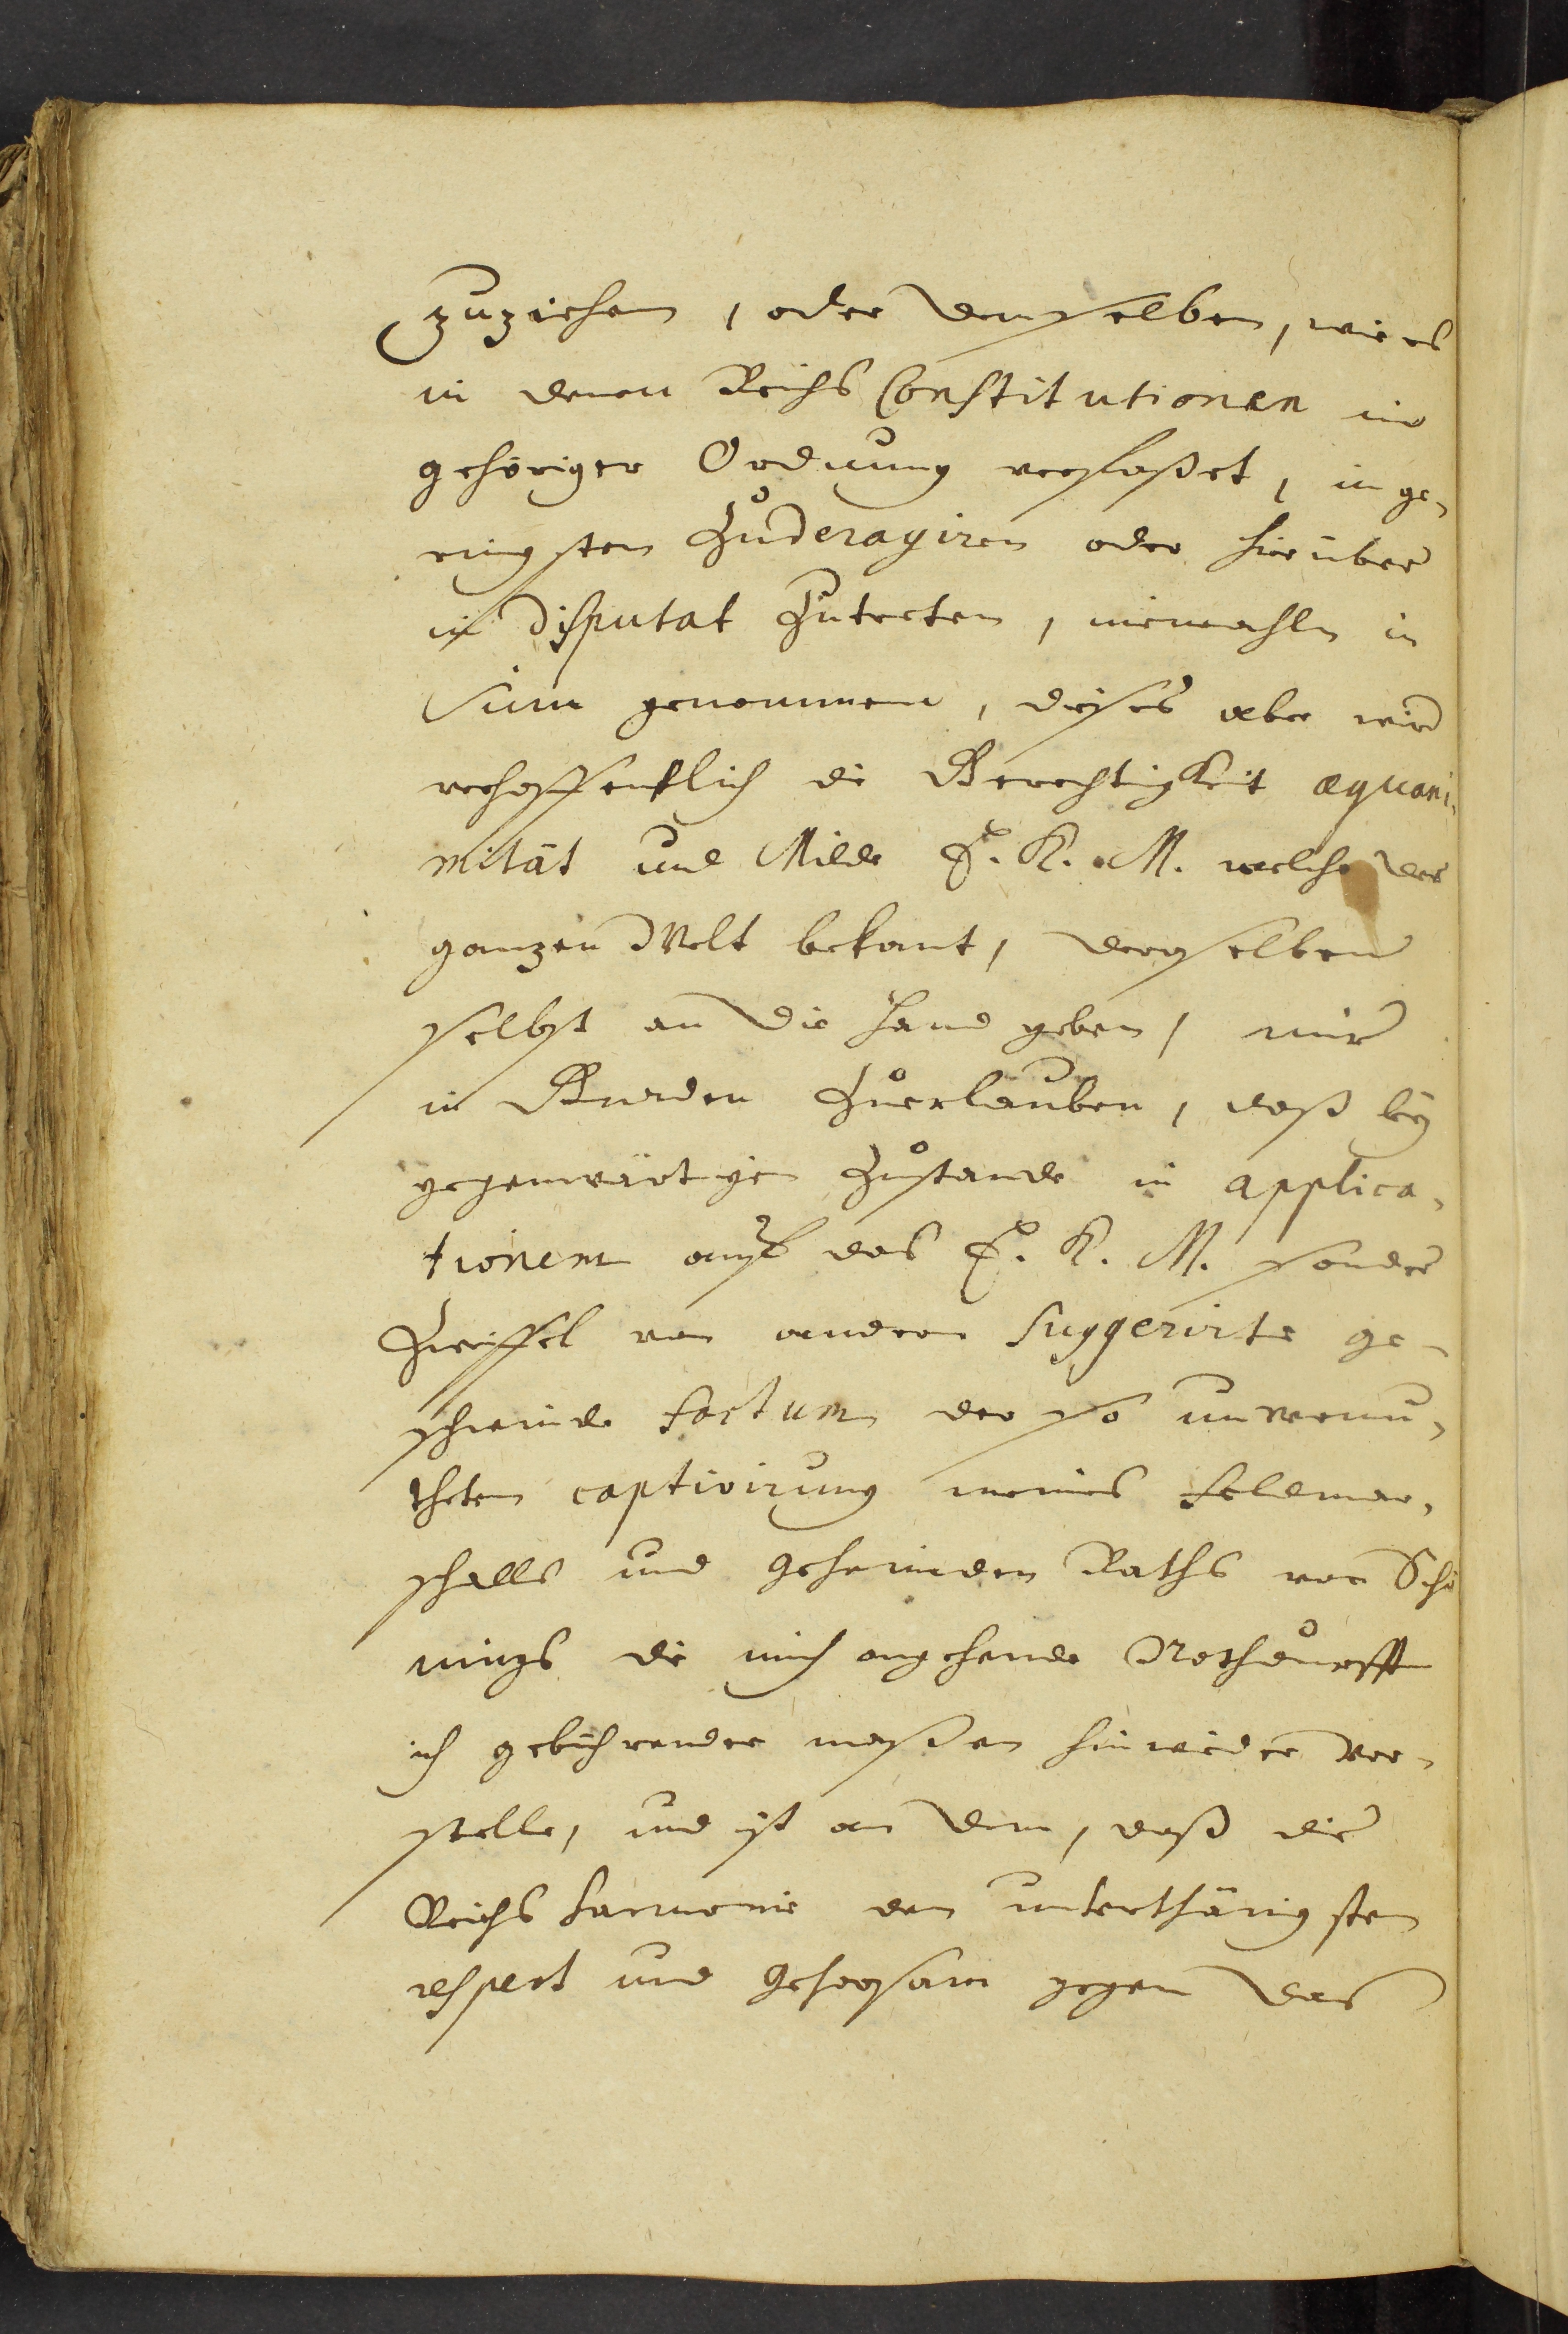 zuziehen, oder demselben, wie es
in denen Reichs Constitutionen in
gehöriger Ordnung verfaßet, im ge-
ringsten zuderagiren oder hierüber
in disputat zutreten, niemahln in
Sinn genommen, dieses aber wird
verhoffentlich die Gerechtigkeit æquani-
mität und Milde E. K. M. welche der
ganzen Welt bekant, deroselben
selbst an die Hand geben, mir
in Gnaden zuerlauben, daß bey
gegenwärtigen Zustande in applica-
tionem auf das E. K. M. sonder
Zweiffel von andern suggerirte ge-
schwinde factum der so unvermu-
theten captivirung meines Feldmar-
schalls und geheimden Raths von Schö
nings die mich angehende Nothdurfft
ich gebührender maßen hinwieder vor-
stelle, und ist an dem, daß die
Reichs Harmonie den unterthänigsten
respect und gehorsam gegen das